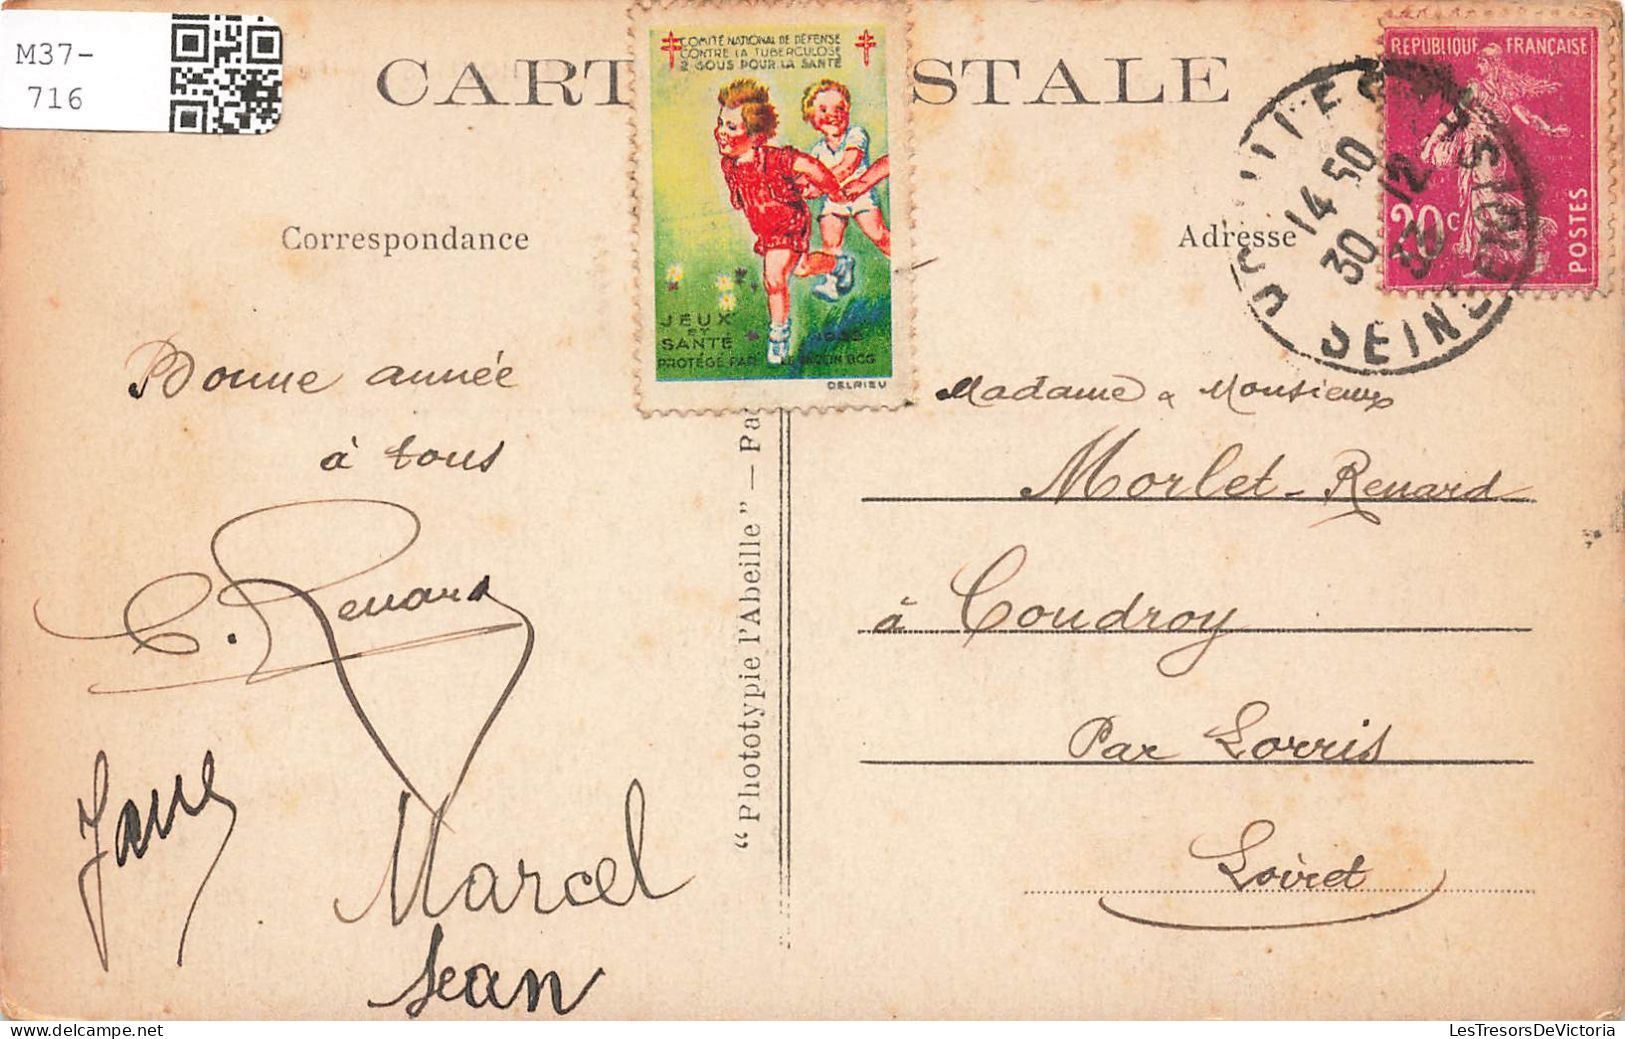 M37-
716
CARTE POSTALE
COMITÉ NATIONAL DE DÉFENSE
CONTRE LA TUBERCULOSE
2 SOUS POUR LA SANTÉ
JEUX
ET
SANTÉ
PROTÉGÉ PAR LE VACCIN BCG
DELRIEU
RÉPUBLIQUE FRANÇAISE
20c
POSTES
14 50
30 12
SEINE
Correspondance
Adresse
Bonne année
à tous
C. Renard
Marcel
Jean
"Phototypie l'Abeille" — Pa
Madame & Monsieur
Morlet-Renard
à Coudroy
Par Lorris
Loiret
LesTresorsDeVictoria